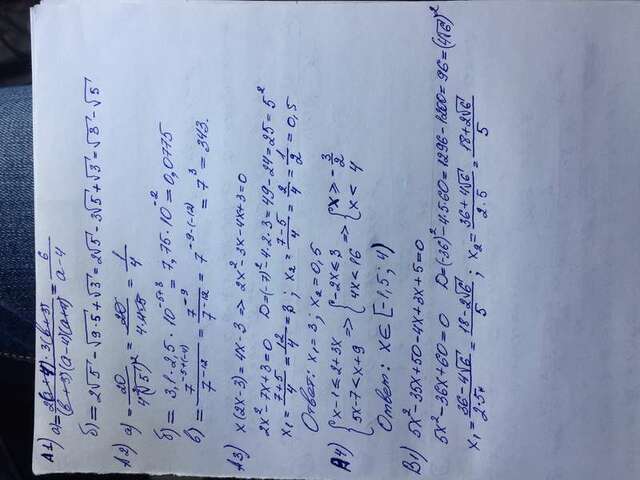 А1) а) = 2(a+4)·3(b+3) / (b+3)(a-4)(a+4) = 6 / a-4
б) = 2√5 - √9·5 + √3 = 2√5 - 3√5 + √3 = √3 - √5
А2) а) = 20 / 4(√5)² = 20 / 4· = 1/4
б) = 3,1 · 2,5 · 10⁻⁵⁺³ = 7,75 · 10⁻² = 0,0775
в) = 7⁻⁵⁺⁽⁻⁴⁾ / 7⁻¹² = 7⁻⁹ / 7⁻¹² = 7⁻⁹⁻⁽⁻¹²⁾ = 7³ = 343.
А3) x(2x-3) = 4x-3 => 2x²-3x-4x+3=0
2x²-7x+3=0 D=(-7)²-4·2·3=49-24=25=5²
x₁ = 7+5 / 4 = 12/4 = 3; x₂ = 7-5 / 4 = 2/4 = 1/2 = 0,5
Ответ: x₁=3; x₂=0,5
А4) { x-1≤2+3x => { -2x≤3 => { x ≥ -3/2
5x-7<x+9 4x<16 x < 4
Ответ: x∈[-1,5; 4)
В1) 5x²-35x+50-4x+3x+5=0
5x²-36x+60=0 D=(-36)²-4·5·60=1296-1200=96=(4√6)²
x₁ = 36-4√6 / 2·5 = 18-2√6 / 5; x₂ = 36+4√6 / 2·5 = 18+2√6 / 5